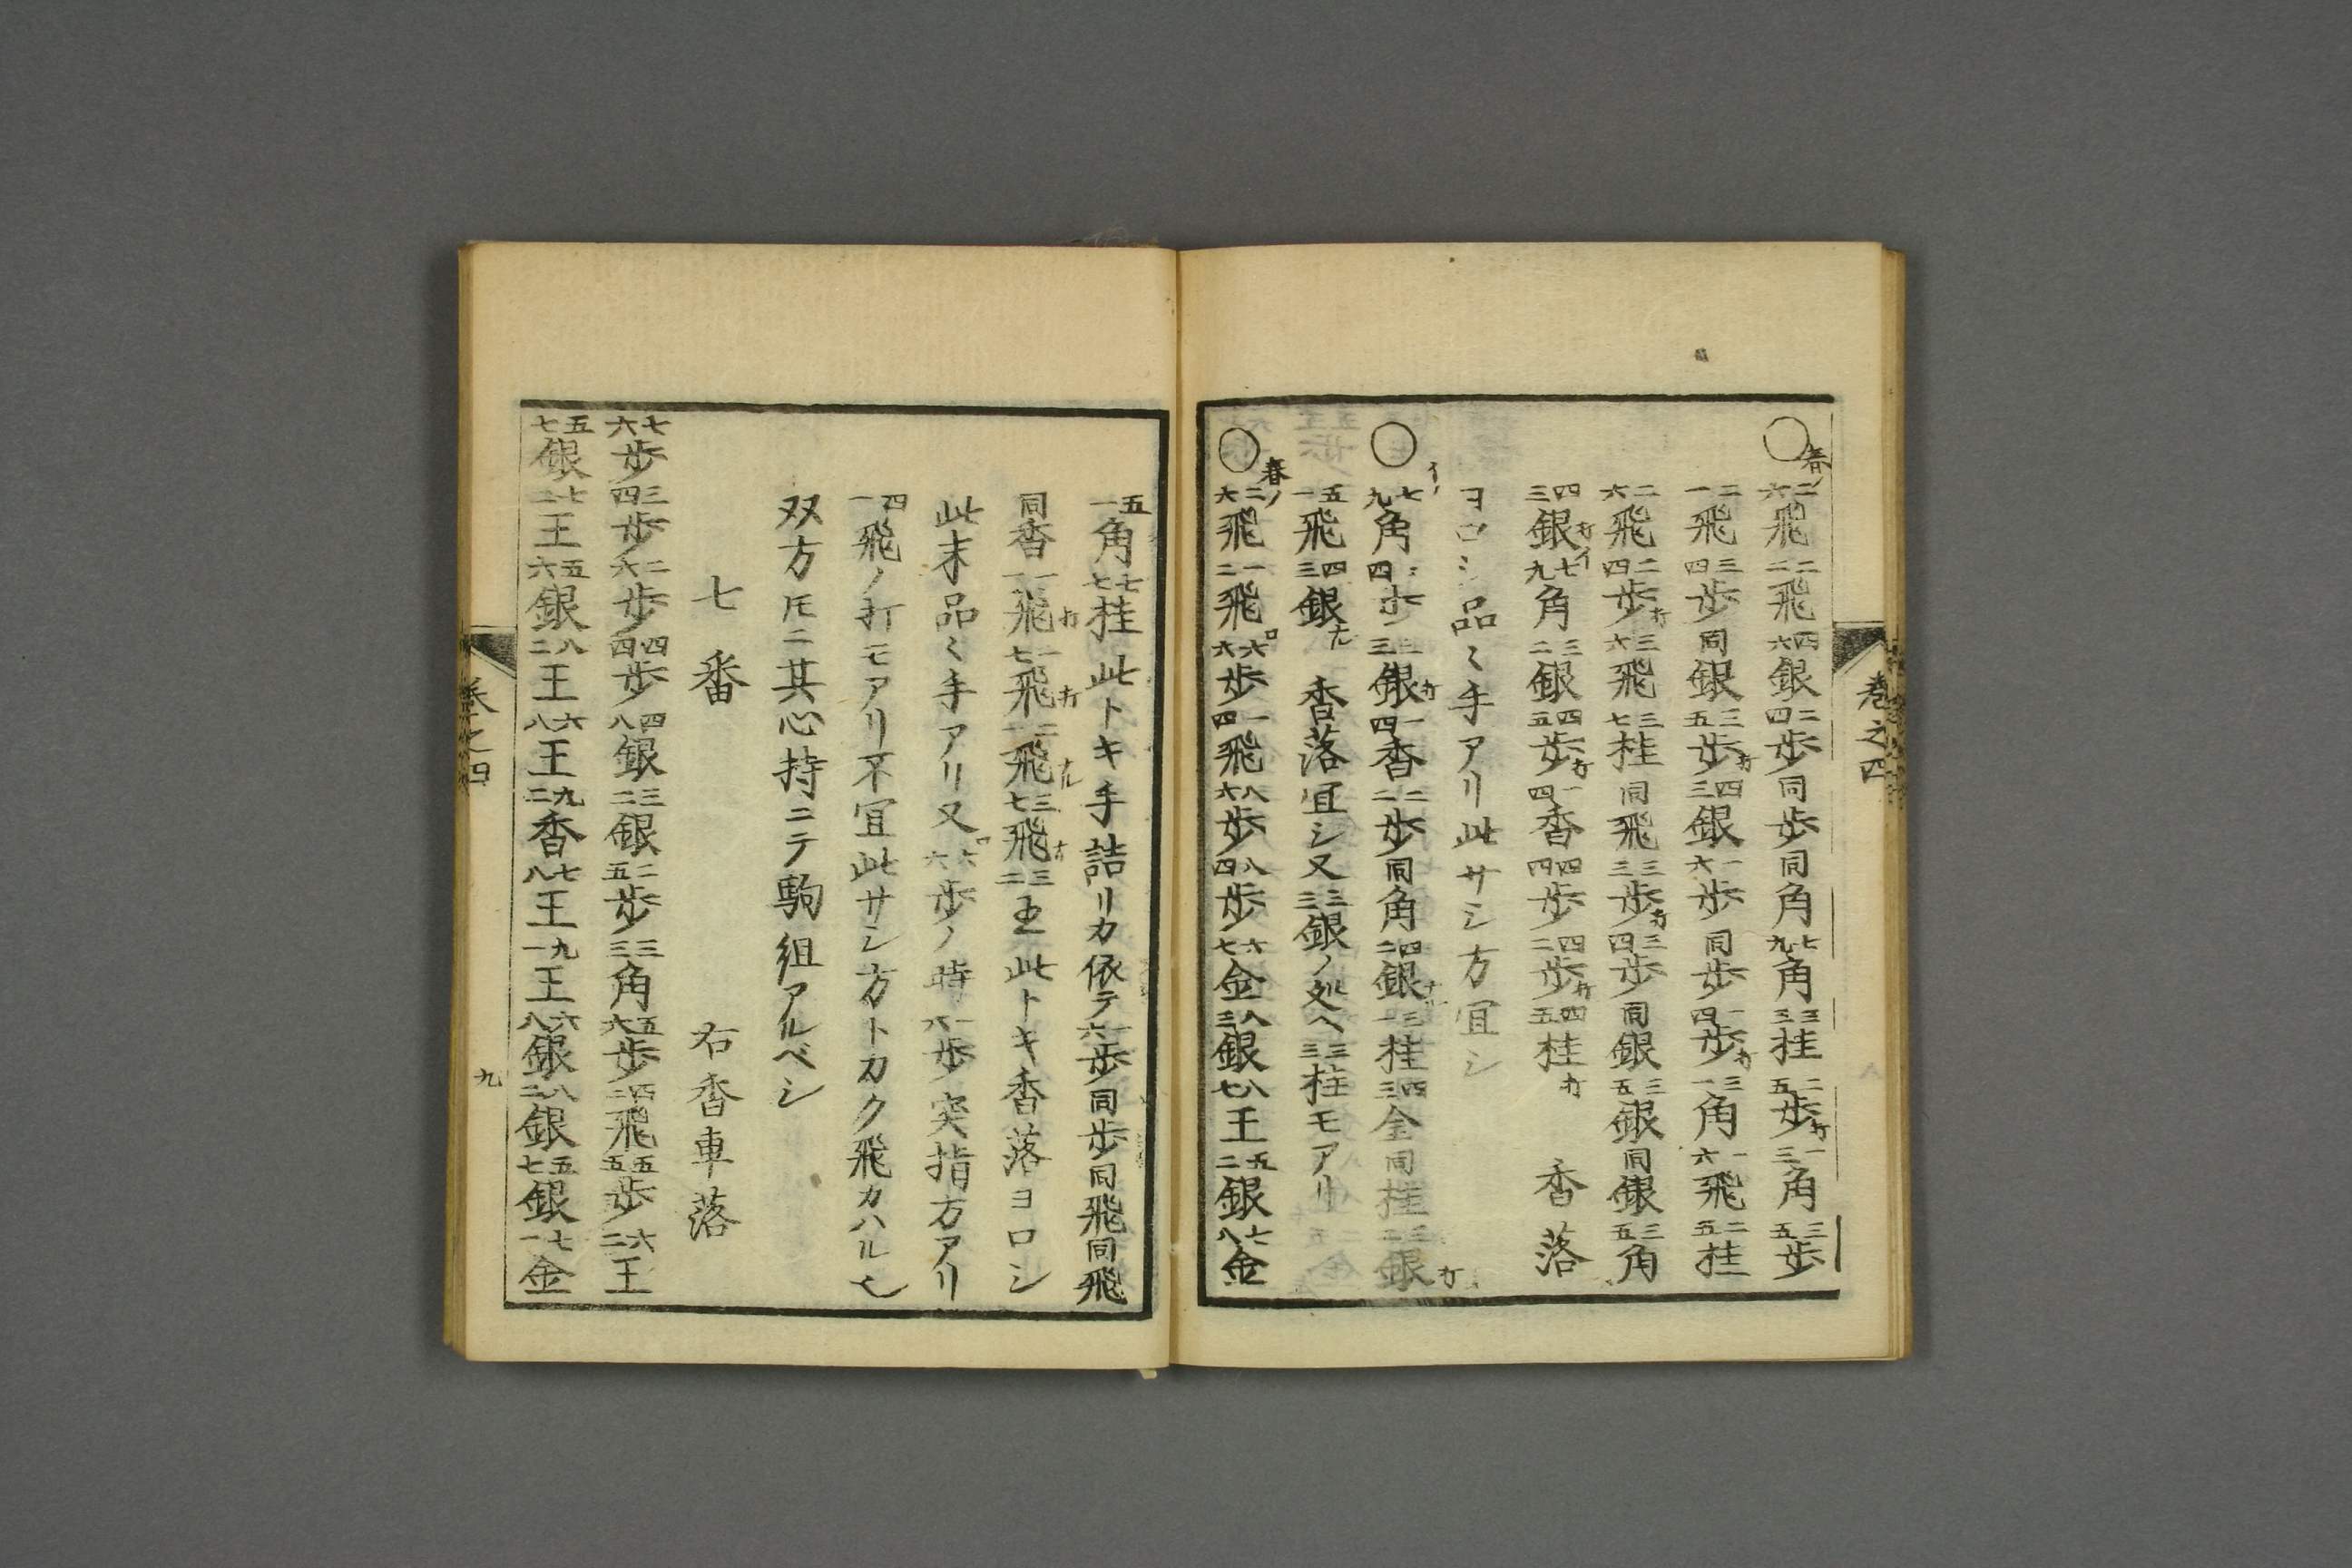 巻之四
○春ノ二六飛二二飛四六銀二四歩同歩同角七九角三三桂二五歩打一三角三五歩
二一飛三四歩同銀三五歩打四三銀一六歩同歩一四歩打三一角一六飛二五桂
二六飛二四歩打三六飛三七桂同飛三三歩打三四歩同銀三五銀同銀三五角
四三銀打イ七九角三二銀四五歩打一四香四四歩四二歩打四五桂打 香落
ヨロシ品〻手アリ此サシ方宜シ
○イノ七九角歩銀打一四香二二歩同角四二銀ナル三一桂四三金同桂三二銀打
五一飛四三銀ナ 香落宜シ又三三銀ノ処ヘ三三桂モアリ
○春ノ二六飛一二飛ロ六六歩一四飛八六歩八四歩六七金八三銀八七王五二銀七八金
五一角七七桂此トキ手詰リカ依テ一六歩同歩同飛同飛
同香一一飛打一七飛打二一飛ナル三七飛ナ三二王此トキ香落ヨロシ
此末品〻手アリ又ロ六六歩ノ時一六歩突指方アリ
四一飛ノ打モアリ不宜此サシ方トカク飛カハル也
双方𪜈ニ其心持ニテ駒組アルベシ
七番 右香車落
七六歩三四歩二六歩四四歩四八銀三二銀二五歩三三角五六歩四二飛五五歩六二王
五七銀七二王五六銀八二王六八王九二香七八王九一王六八銀八二銀五七銀七一金
巻之四
九